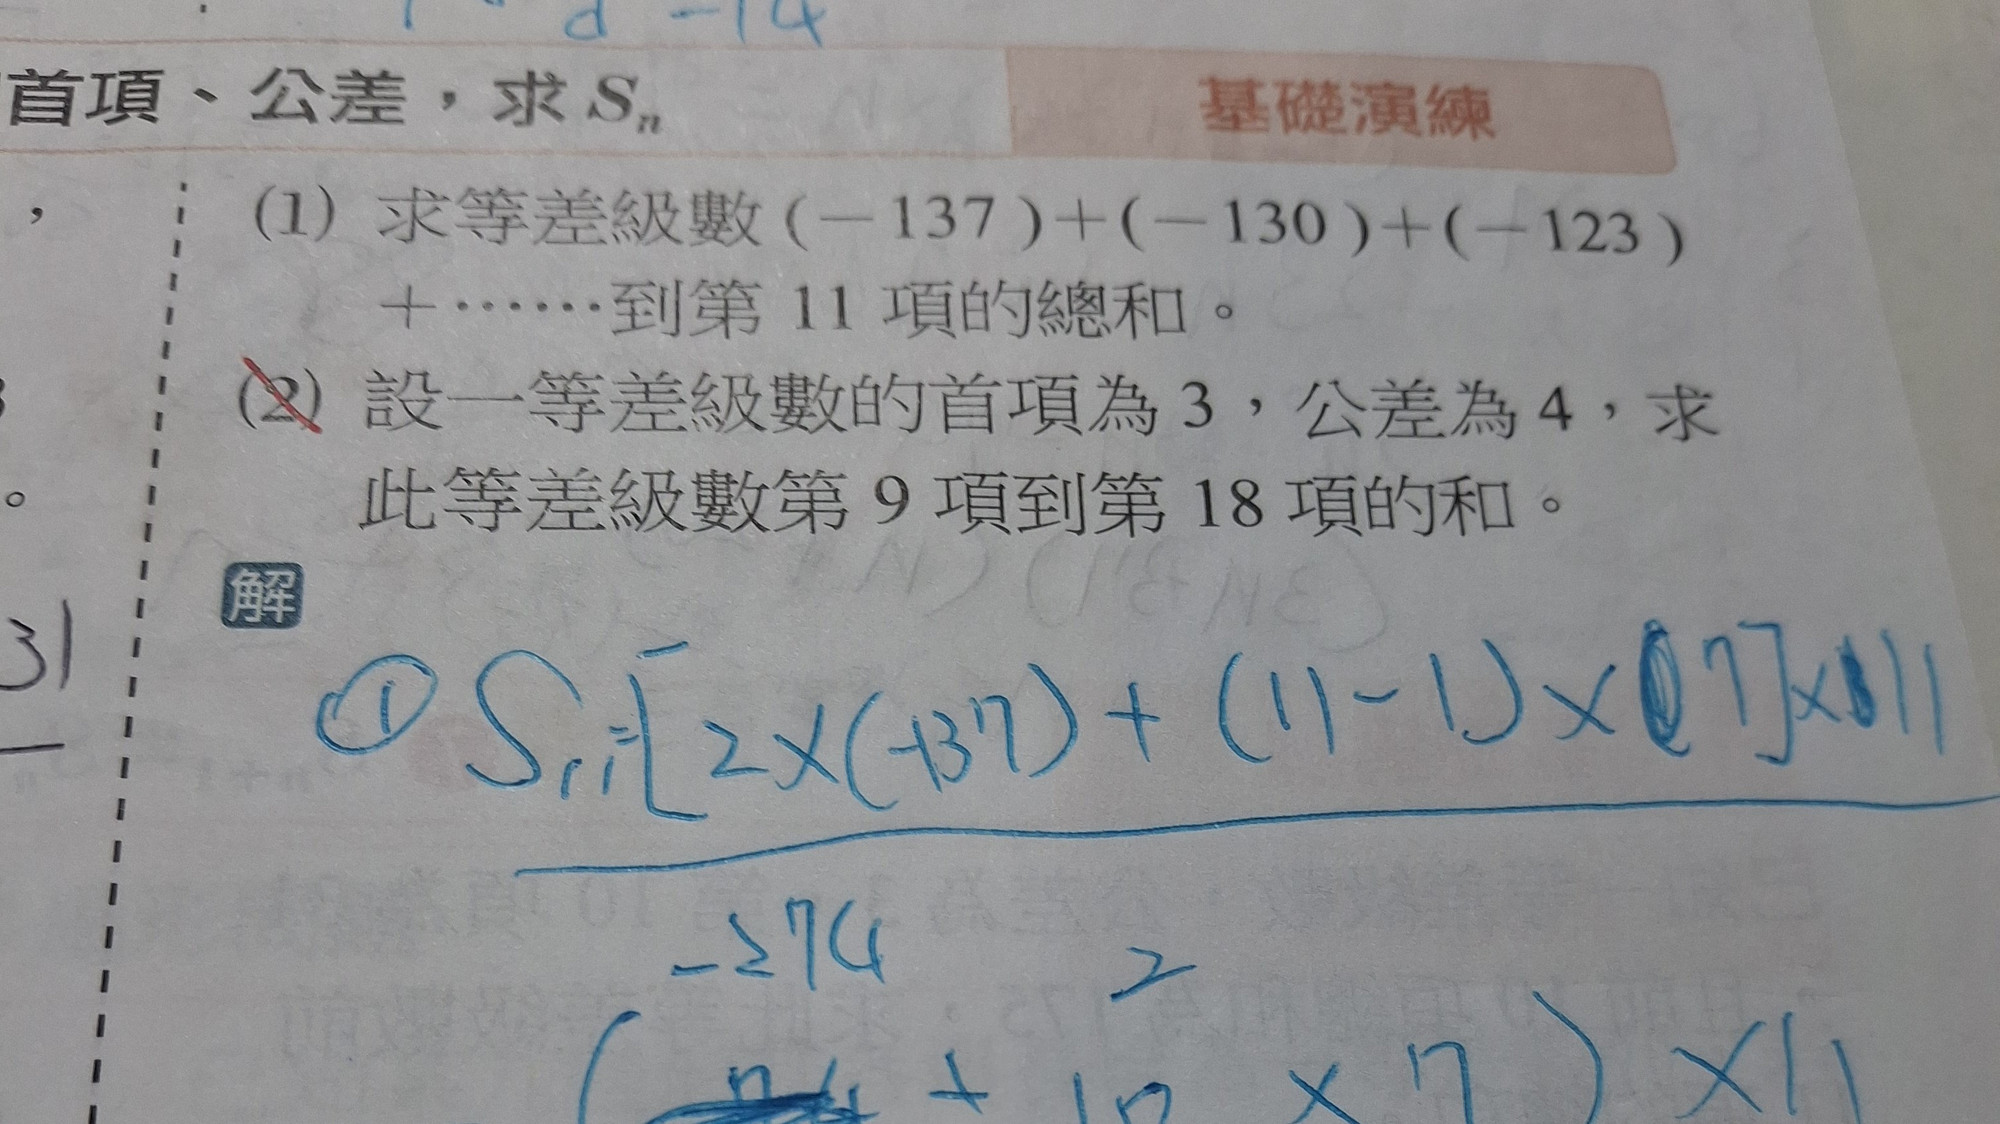 d -14
首項、公差，求 Sn
基礎演練
，
(1) 求等差級數 (－137)＋(－130)＋(－123)
＋……到第 11 項的總和。
(2) 設一等差級數的首項為 3，公差為 4，求
。
此等差級數第 9 項到第 18 項的和。
解
31
① S11=[2×(-137)+(11-1)×7]×11
2
-274
( + 10 × 7 ) ×11